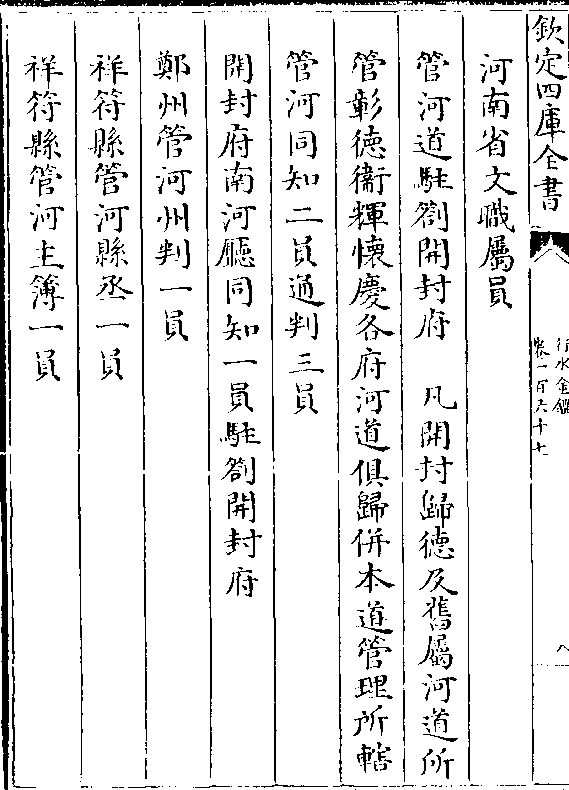 欽定四庫全書
行水金鑑
卷一百六十七
八
河南省文職屬員
管河道駐劄開封府　凡開封歸德及舊屬河道所
管彰德衞輝懷慶各府河道俱歸併本道管理所轄
管河同知二員通判三員
開封府南河廳同知一員駐劄開封府
鄭州管河州判一員
祥符縣管河縣丞一員
祥符縣管河主簿一員